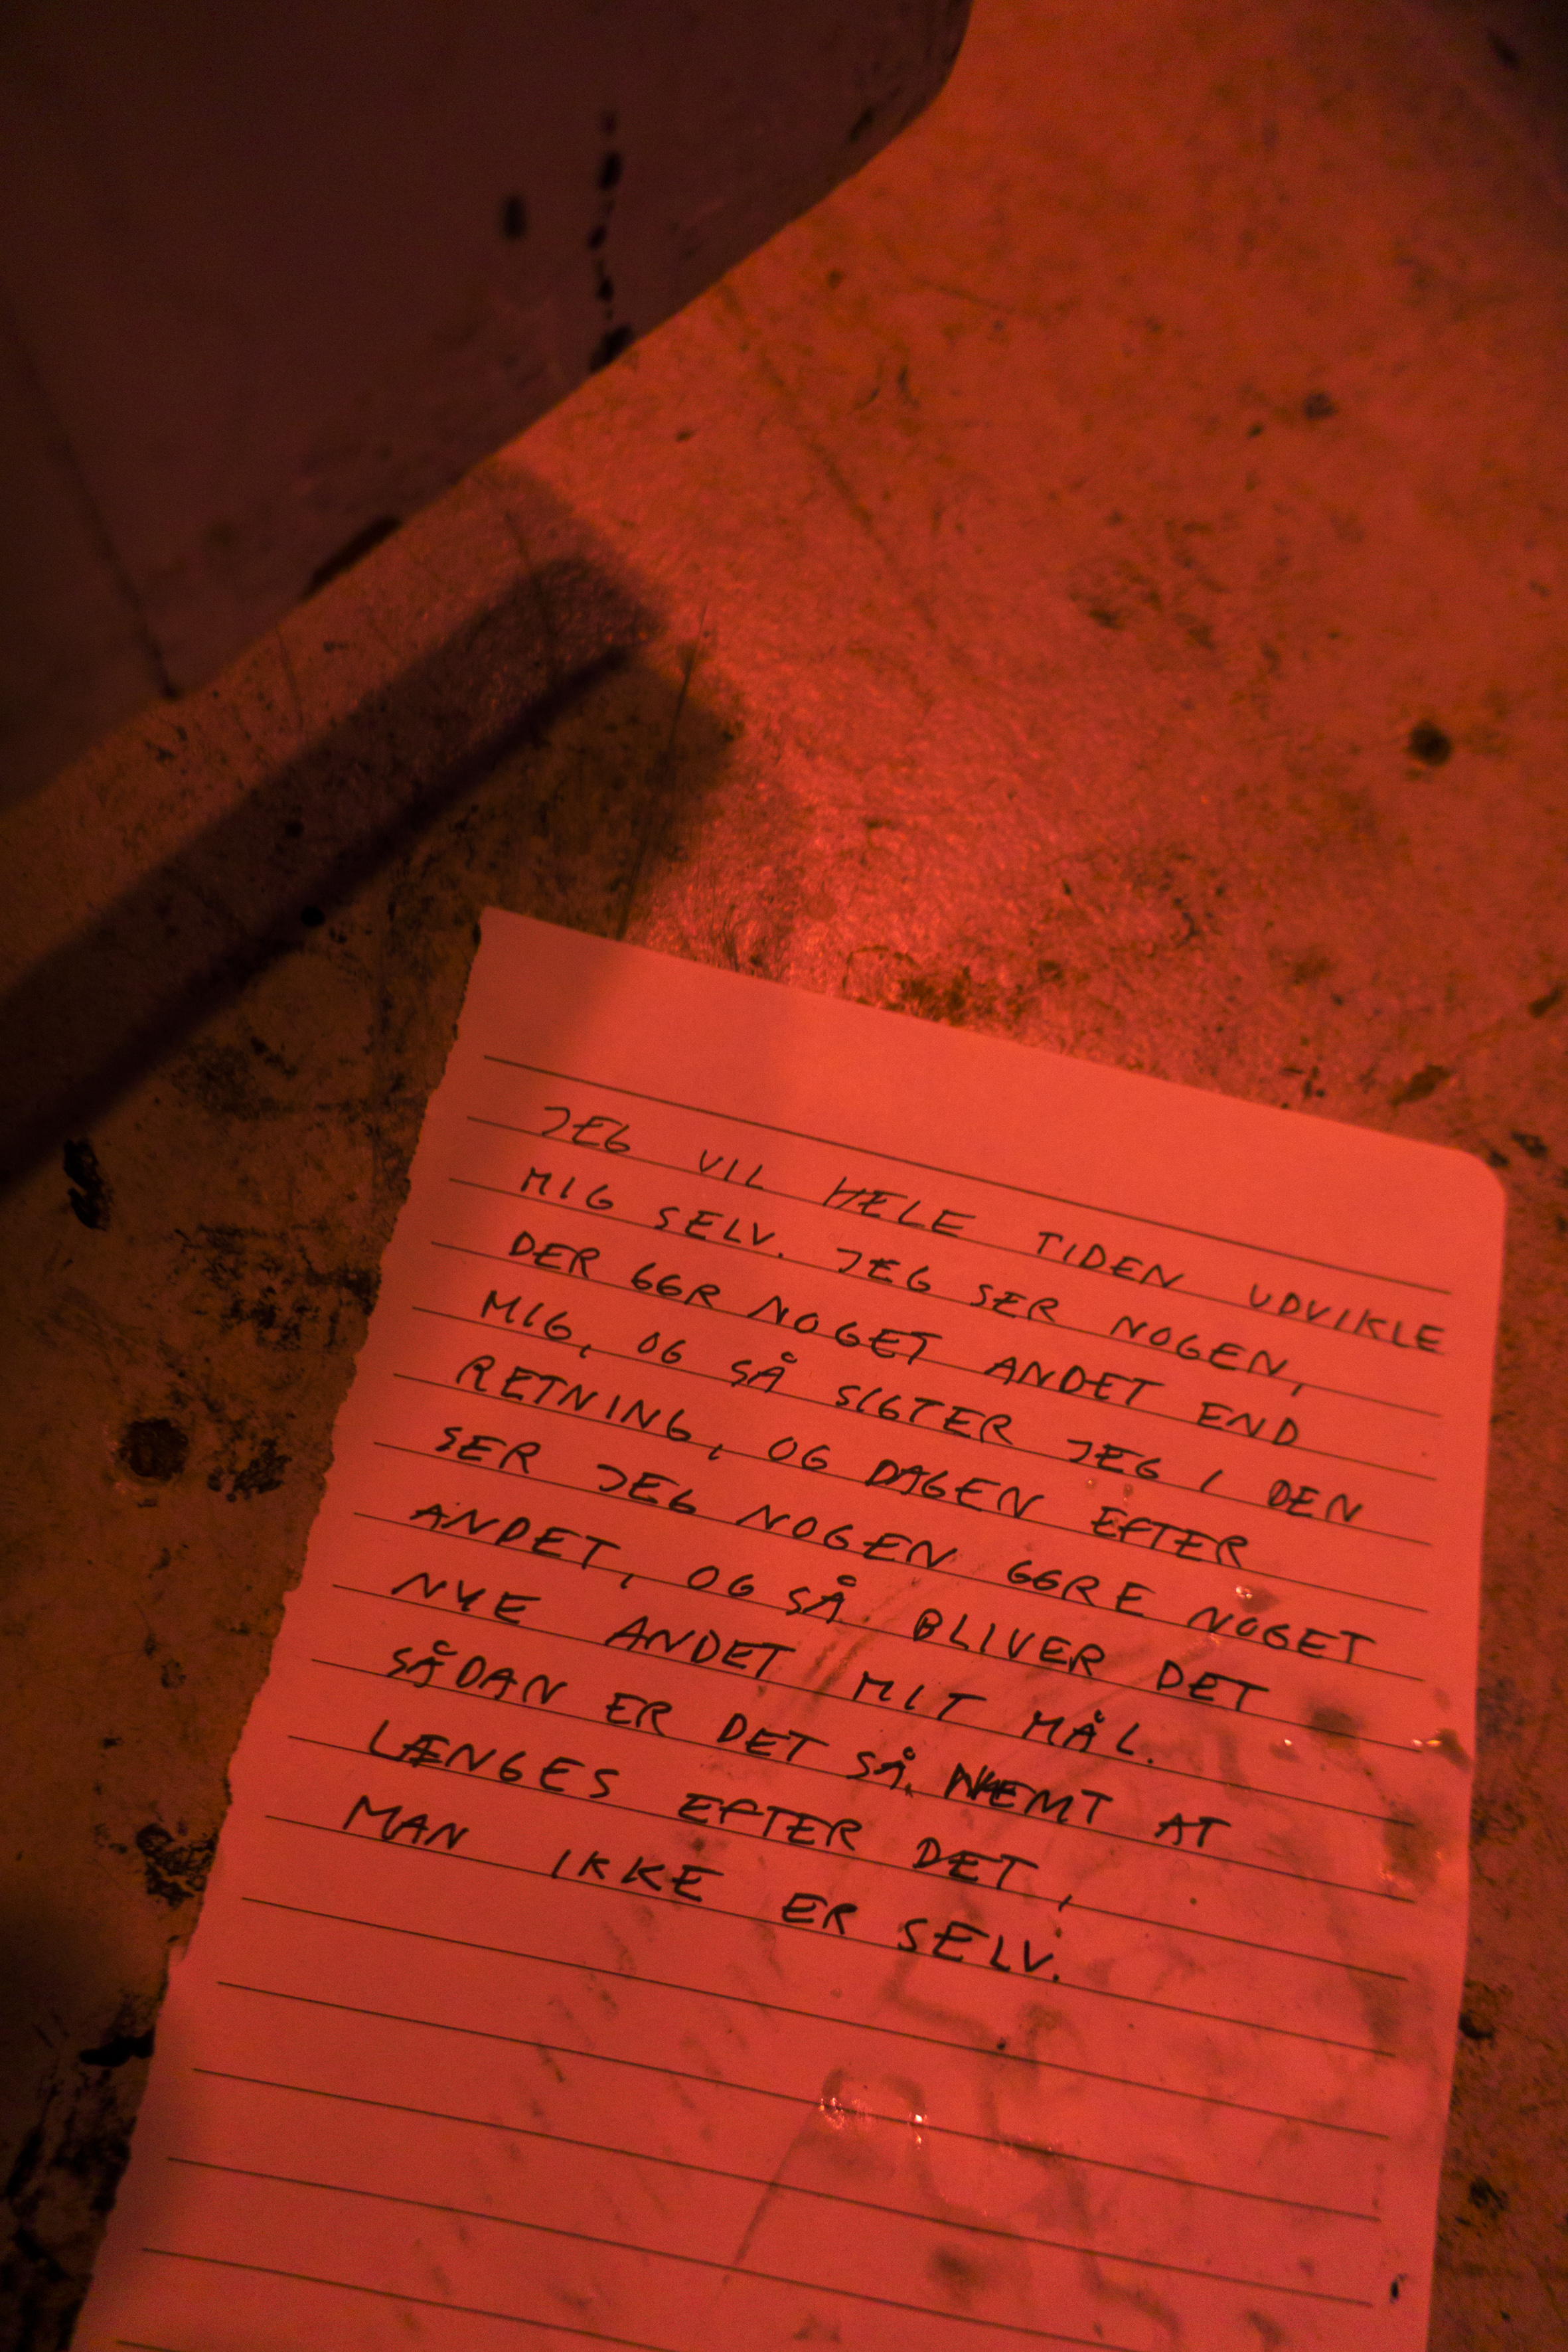 JEG VIL HELE TIDEN UDVIKLE
MIG SELV. JEG SER NOGEN,
DER GGR NOGET ANDET END
MIG, OG SÅ SIGTER JEG I DEN
RETNING, OG DAGEN EFTER
SER JEG NOGEN GGRE NOGET
ANDET, OG SÅ BLIVER DET
NYE ANDET MIT MÅL.
SÅDAN ER DET SÅ NEMT AT
LÆNGES EFTER DET,
MAN IKKE ER SELV.